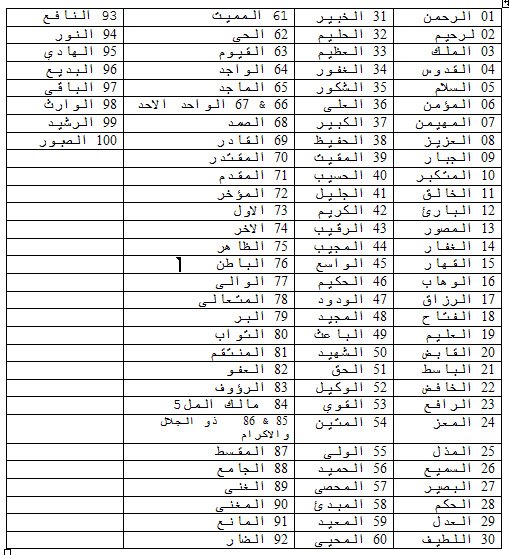 01 الرحمن
02 لرحيم
03 الملك
04 القدوس
05 السلام
06 المؤمن
07 المهيمن
08 العزيز
09 الجبار
10 المتكبر
11 الخالق
12 البارئ
13 المصور
14 الغفار
15 القهار
16 الوهاب
17 الرزاق
18 الفتاح
19 العليم
20 القابض
21 الباسط
22 الخافض
23 الرافع
24 المعز
25 المذل
26 السميع
27 البصير
28 الحكم
29 العدل
30 اللطيف
31 الخبير
32 الحليم
33 العظيم
34 الغفور
35 الشكور
36 العلى
37 الكبير
38 الحفيظ
39 المقيت
40 الحسيب
41 الجليل
42 الكريم
43 الرقيب
44 المجيب
45 الواسع
46 الحكيم
47 الودود
48 المجيد
49 الباعث
50 الشهيد
51 الحق
52 الوكيل
53 القوي
54 المتين
55 الولى
56 الحميد
57 المحصى
58 المبدئ
59 المعيد
60 المحيى
61 المميت
62 الحى
63 القيوم
64 الواجد
65 الماجد
66 & 67 الواحد الاحد
68 الصمد
69 القادر
70 المقتدر
71 المقدم
72 المؤخر
73 الاول
74 الاخر
75 الظاهر
76 الباطن
77 الوالى
78 المتعالى
79 البر
80 التواب
81 المنتقم
82 العفو
83 الرؤوف
84 مالك المل5
85 & 86 ذو الجلال
والاكرام
87 المقسط
88 الجامع
89 الغنى
90 المغنى
91 المانع
92 الضار
93 النافع
94 النور
95 الهادي
96 البديع
97 الباقى
98 الوارث
99 الرشيد
100 الصبور